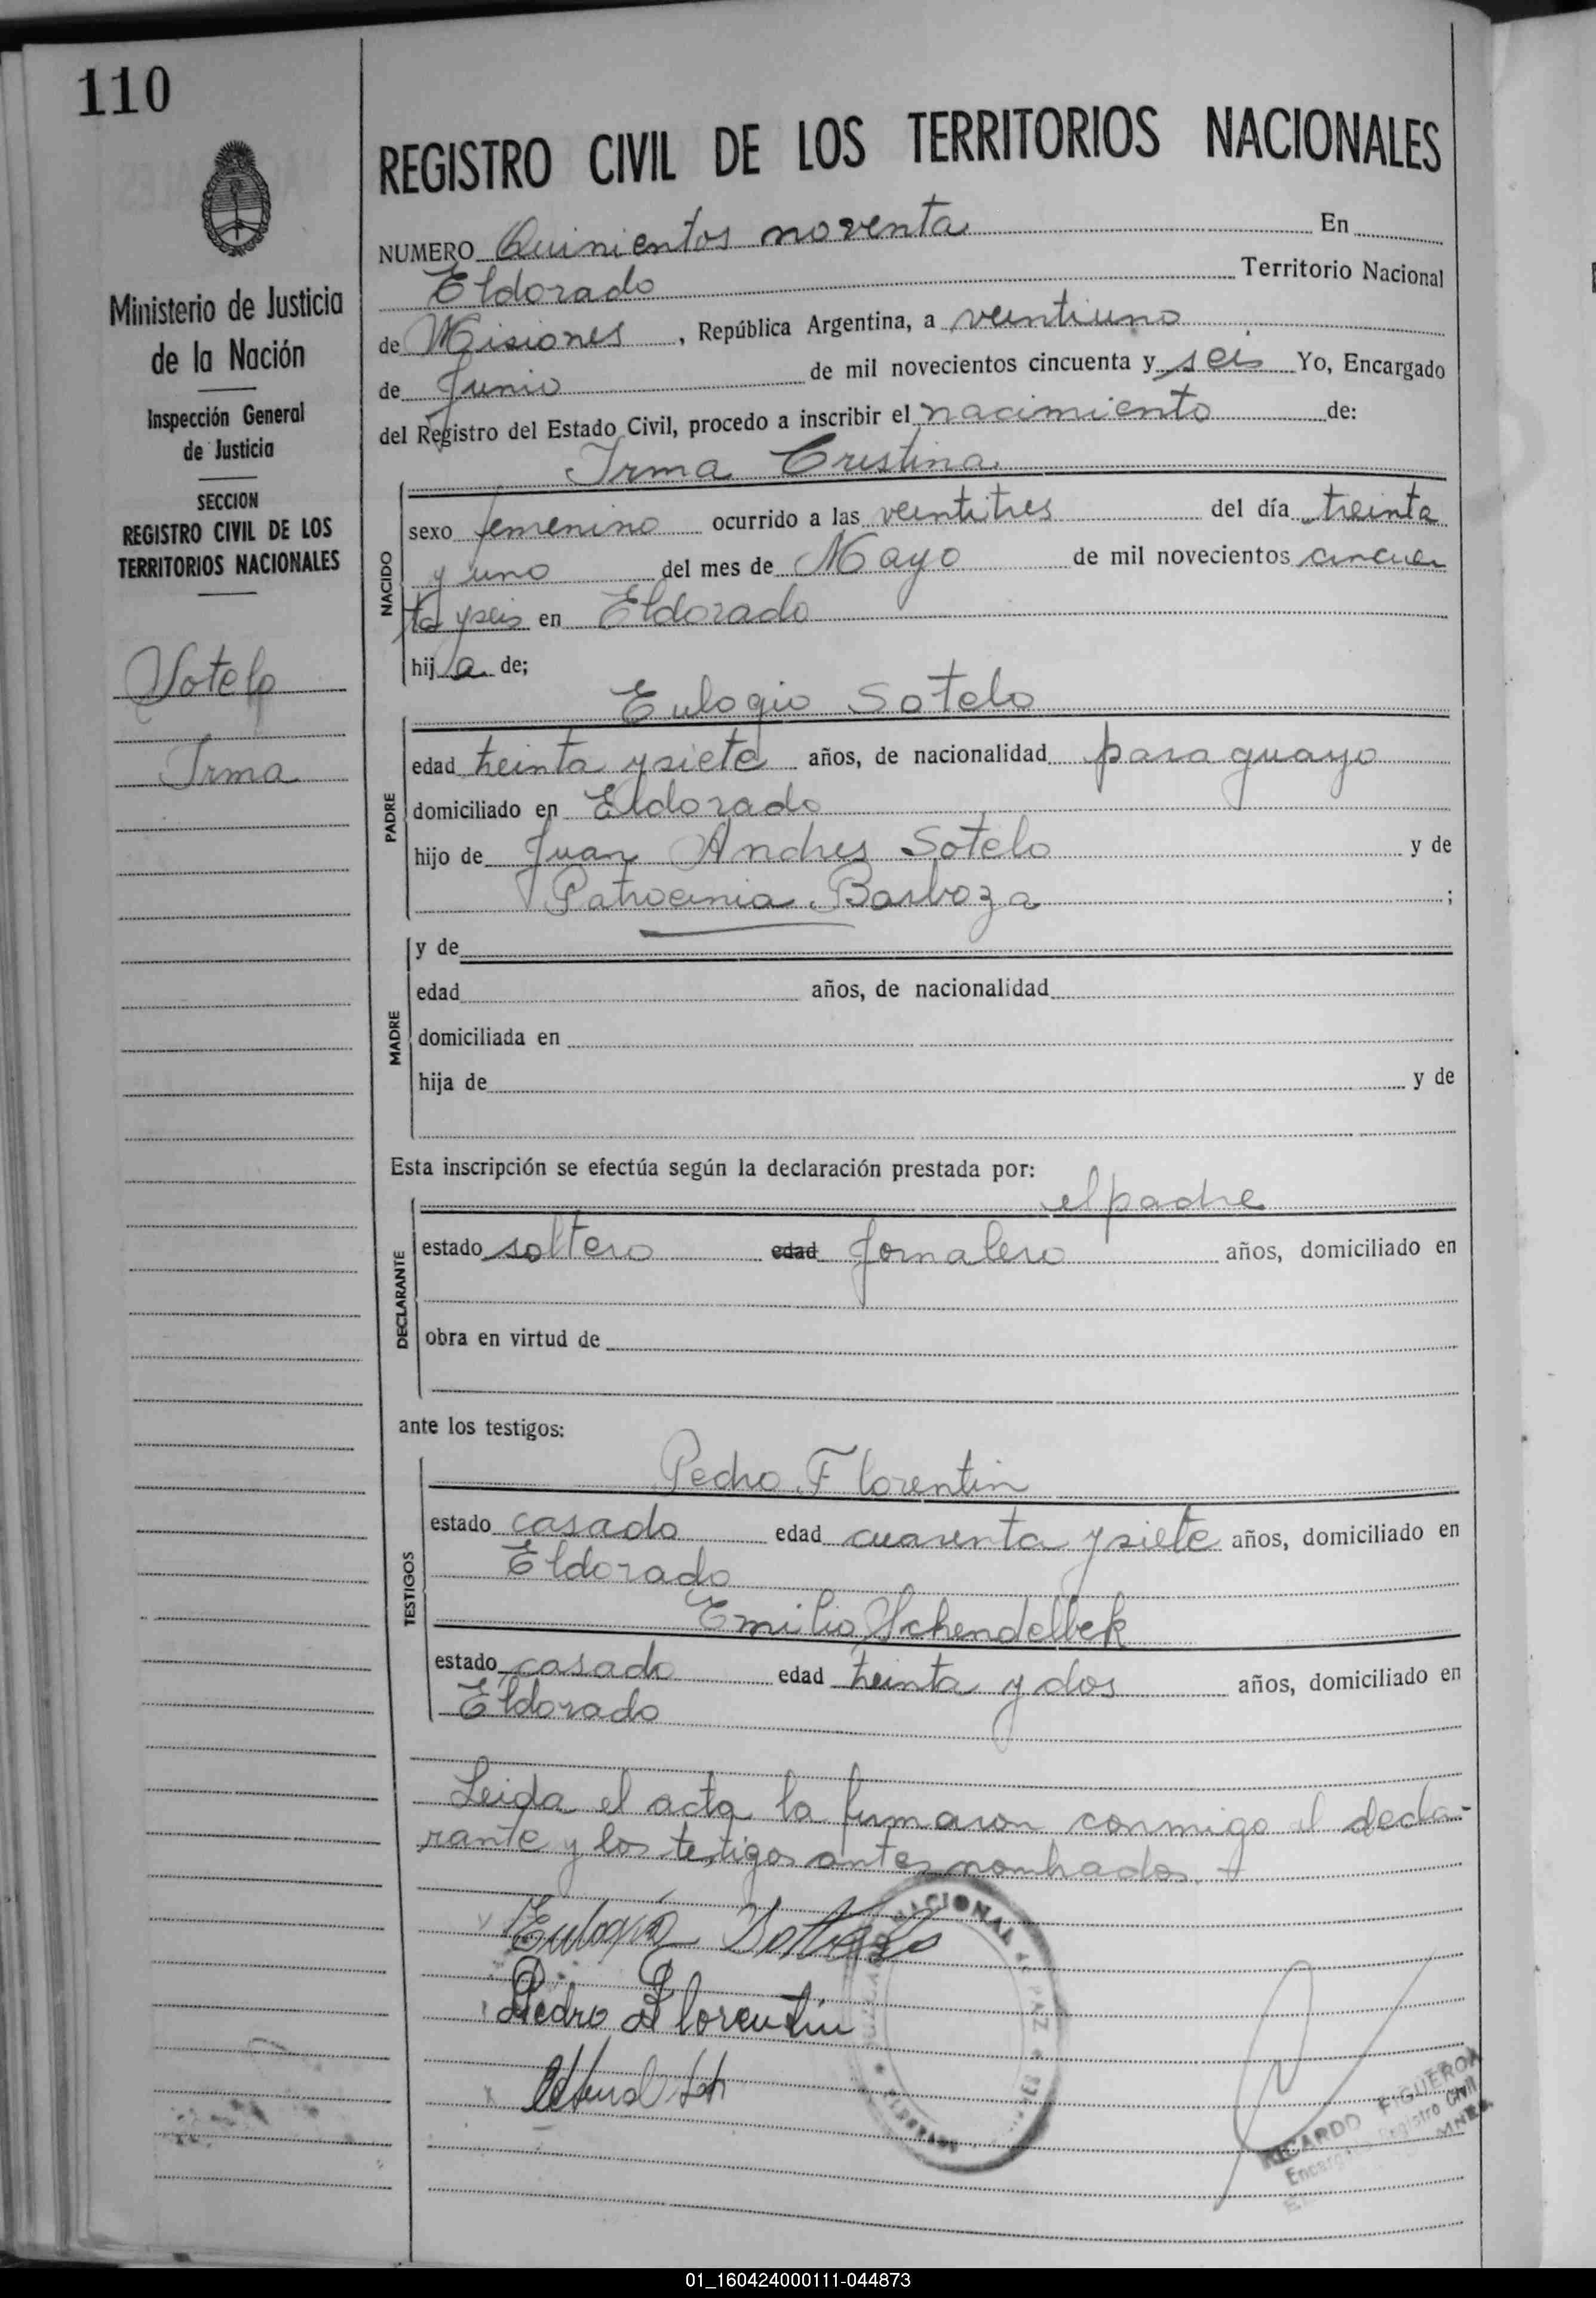 110
REGISTRO CIVIL DE LOS TERRITORIOS NACIONALES
Ministerio de Justicia
de la Nación
Inspección General
de Justicia
SECCION
REGISTRO CIVIL DE LOS
TERRITORIOS NACIONALES
Sotelo
Irma
NUMERO Quinientos noventa En
Eldorado Territorio Nacional
de Misiones, República Argentina, a veintiuno
de Junio de mil novecientos cincuenta y seis Yo, Encargado
del Registro del Estado Civil, procedo a inscribir el nacimiento de:
Irma Cristina
NACIDO
sexo femenino ocurrido a las veintitres del día treinta
y uno del mes de Mayo de mil novecientos cincuen
ta y seis en Eldorado
hija de;
Eulogio Sotelo
PADRE
edad treinta y siete años, de nacionalidad paraguayo
domiciliado en Eldorado
hijo de Juan Andres Sotelo y de
Patrocinia Barboza ;
MADRE
y de
edad años, de nacionalidad
domiciliada en
hija de y de
Esta inscripción se efectúa según la declaración prestada por:
el padre
DECLARANTE
estado soltero edad Jornalero años, domiciliado en
obra en virtud de
ante los testigos:
TESTIGOS
Pedro Florentin
estado casado edad cuarenta y siete años, domiciliado en
Eldorado
Emilio Schendelbek
estado casado edad treinta y dos años, domiciliado en
Eldorado
Leida el acta la firmaron conmigo el decla-
rante y los testigos antes nombrados.
Eulogio Sotelo
Pedro Florentin
RICARDO FIGUEROA
Encargado Registro Civil
01_160424000111-044873